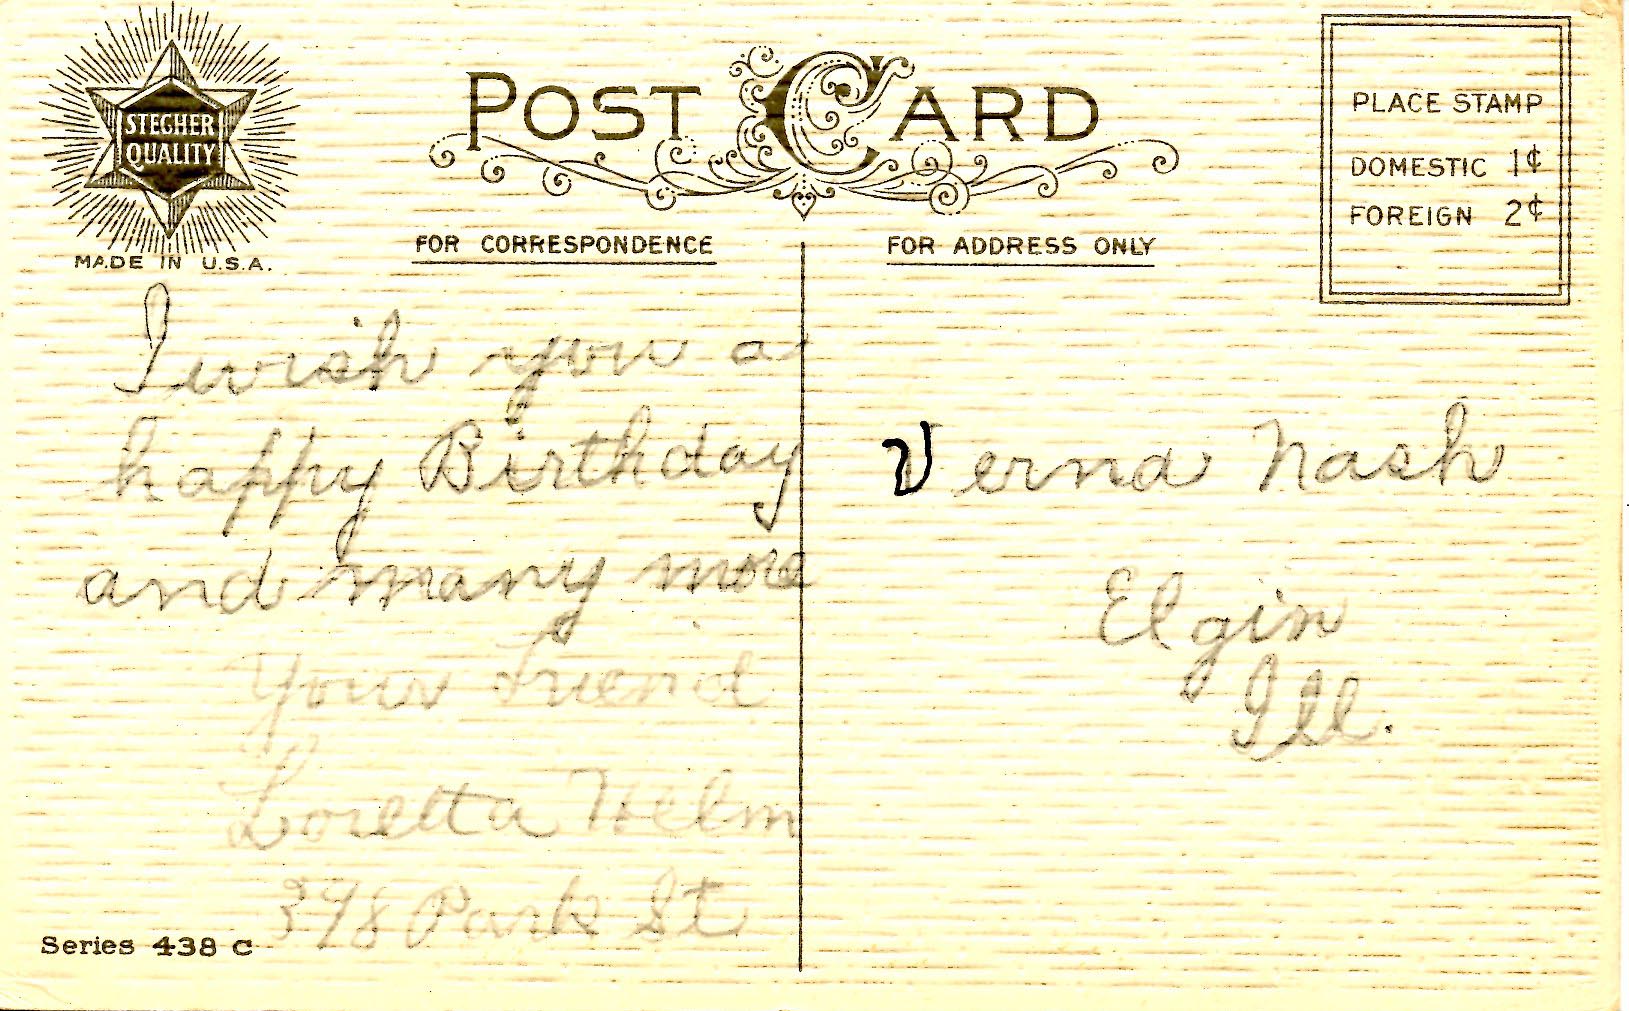 STECHER
QUALITY
MADE IN U.S.A.
POST CARD
PLACE STAMP
DOMESTIC 1¢
FOREIGN 2¢
FOR CORRESPONDENCE
FOR ADDRESS ONLY
I wish you a
happy Birthday
and many more
Your Friend
Loretta Helm
348 Park St
Verna Nash
Elgin
Ill.
Series 438 C